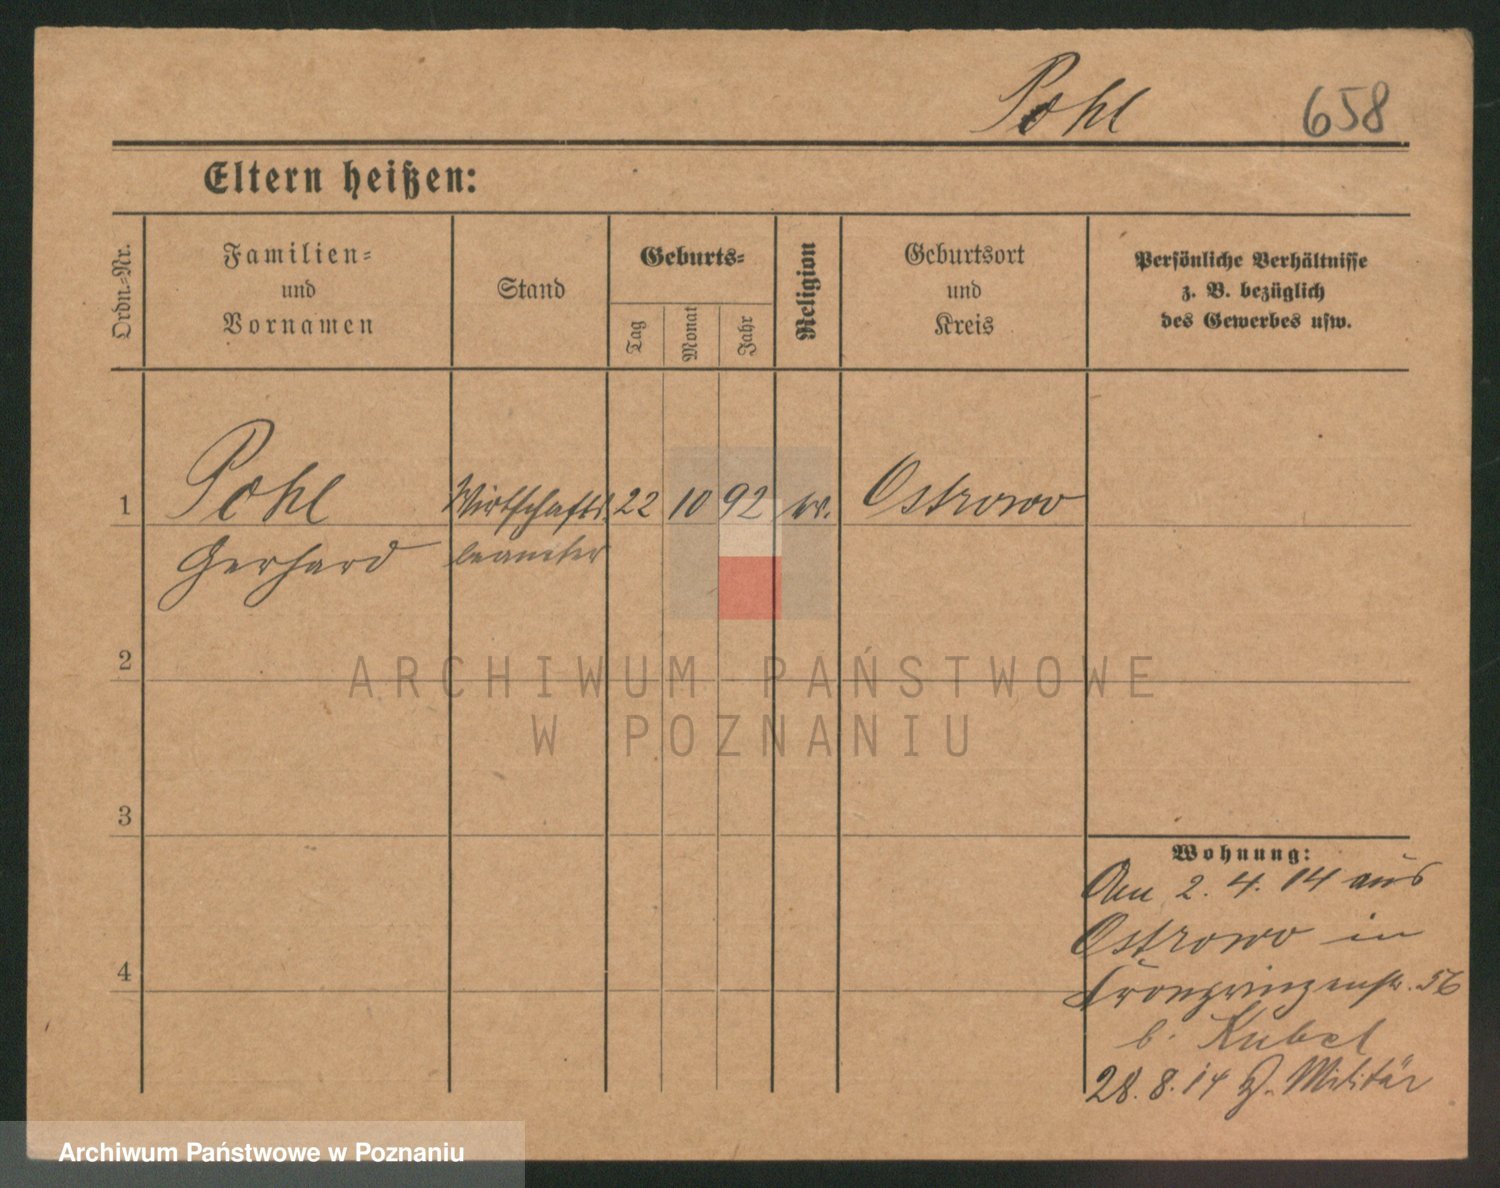 Pohl 658
Eltern heißen:
Ordn.-Nr.
Familien-
und
Vornamen
Stand
Geburts-
Tag
Monat
Jahr
Religion
Geburtsort
und
Kreis
Persönliche Verhältnisse
z. B. bezüglich
des Gewerbes usw.
1 Pohl Wirtschafts. 22 10 92 ev. Ostrowo
Gerhard beamter
2
3
4
Wohnung:
Am 2. 4. 14 aus
Ostrowo in
Kronprinzenstr. 56
b. Kubel
28. 8. 14 z. Militär
ARCHIWUM PAŃSTWOWE
W POZNANIU
Archiwum Państwowe w Poznaniu